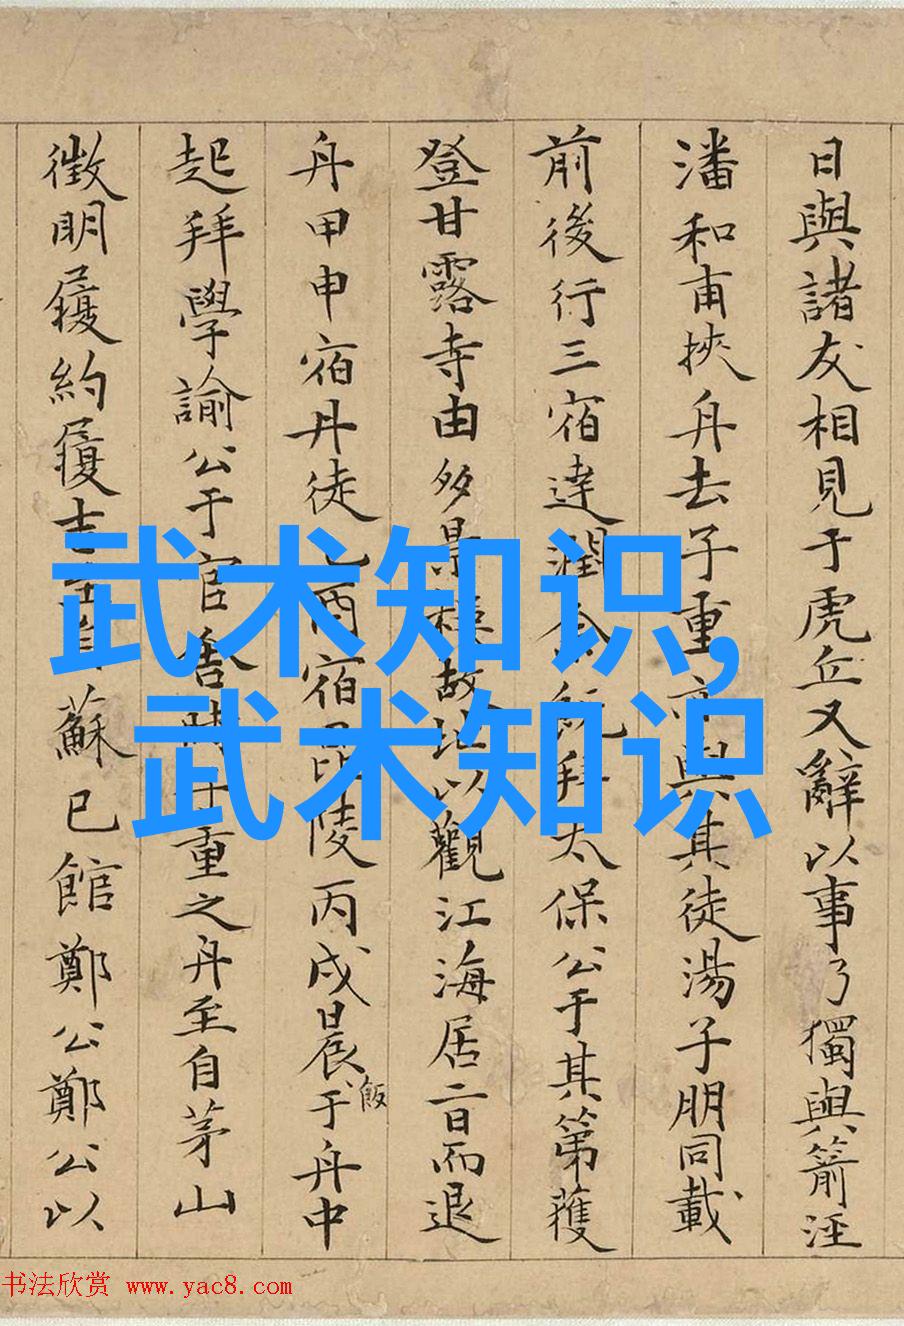 日與諸友相見于虎丘又辭以事乃獨與箭涇
潘和甫挾舟去子重亦與其徒湯子朋同載
前後行三宿達潤余祇拜太保公于其第獲
登甘露寺由多景樓故址以觀江海居二日而退
舟甲申宿丹徒乙酉宿毘陵丙戌晨飯于舟中
起拜學諭公于官舍 重之舟至自茅山
徵明履約履吉 自蘇已館鄭公鄭公以
武术知识,
武术知识
书法欣赏 www.yac8.com